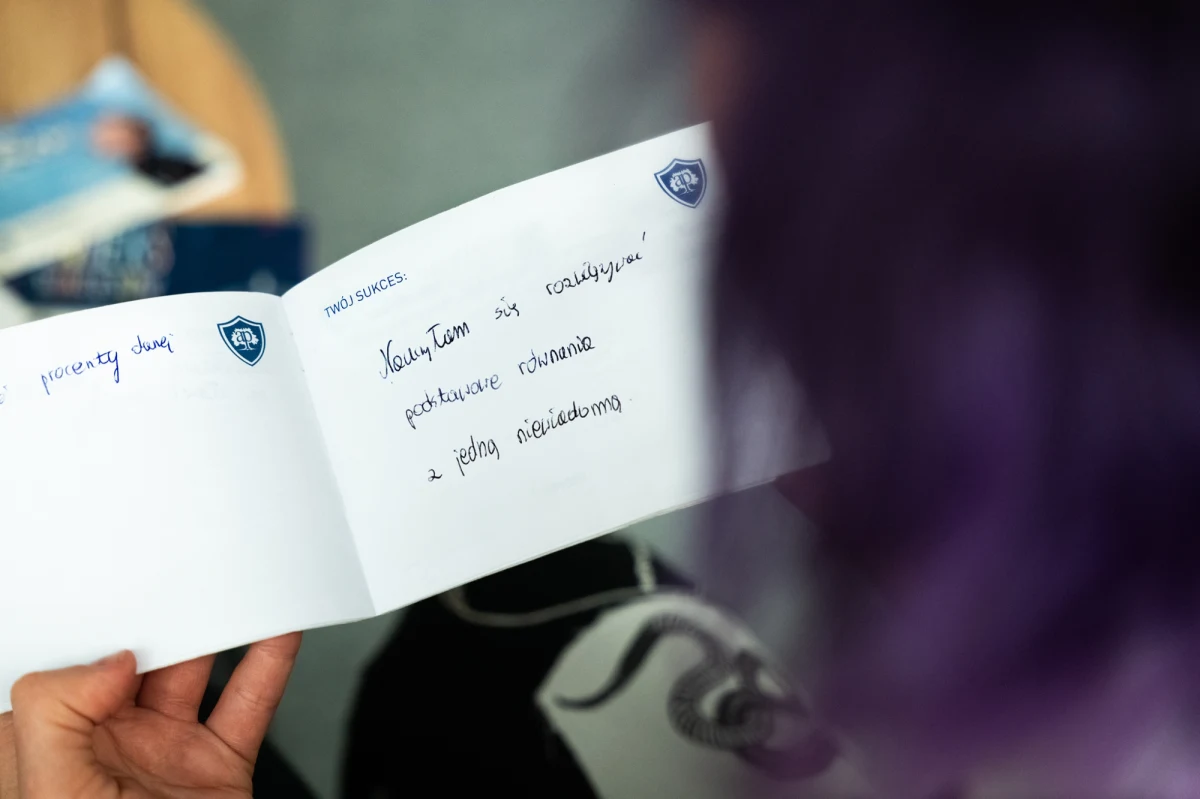 procenty danej
ap
TWÓJ SUKCES:
Nauczyłam się rozwiązywać
podstawowe równania
z jedną niewiadomą.
ap